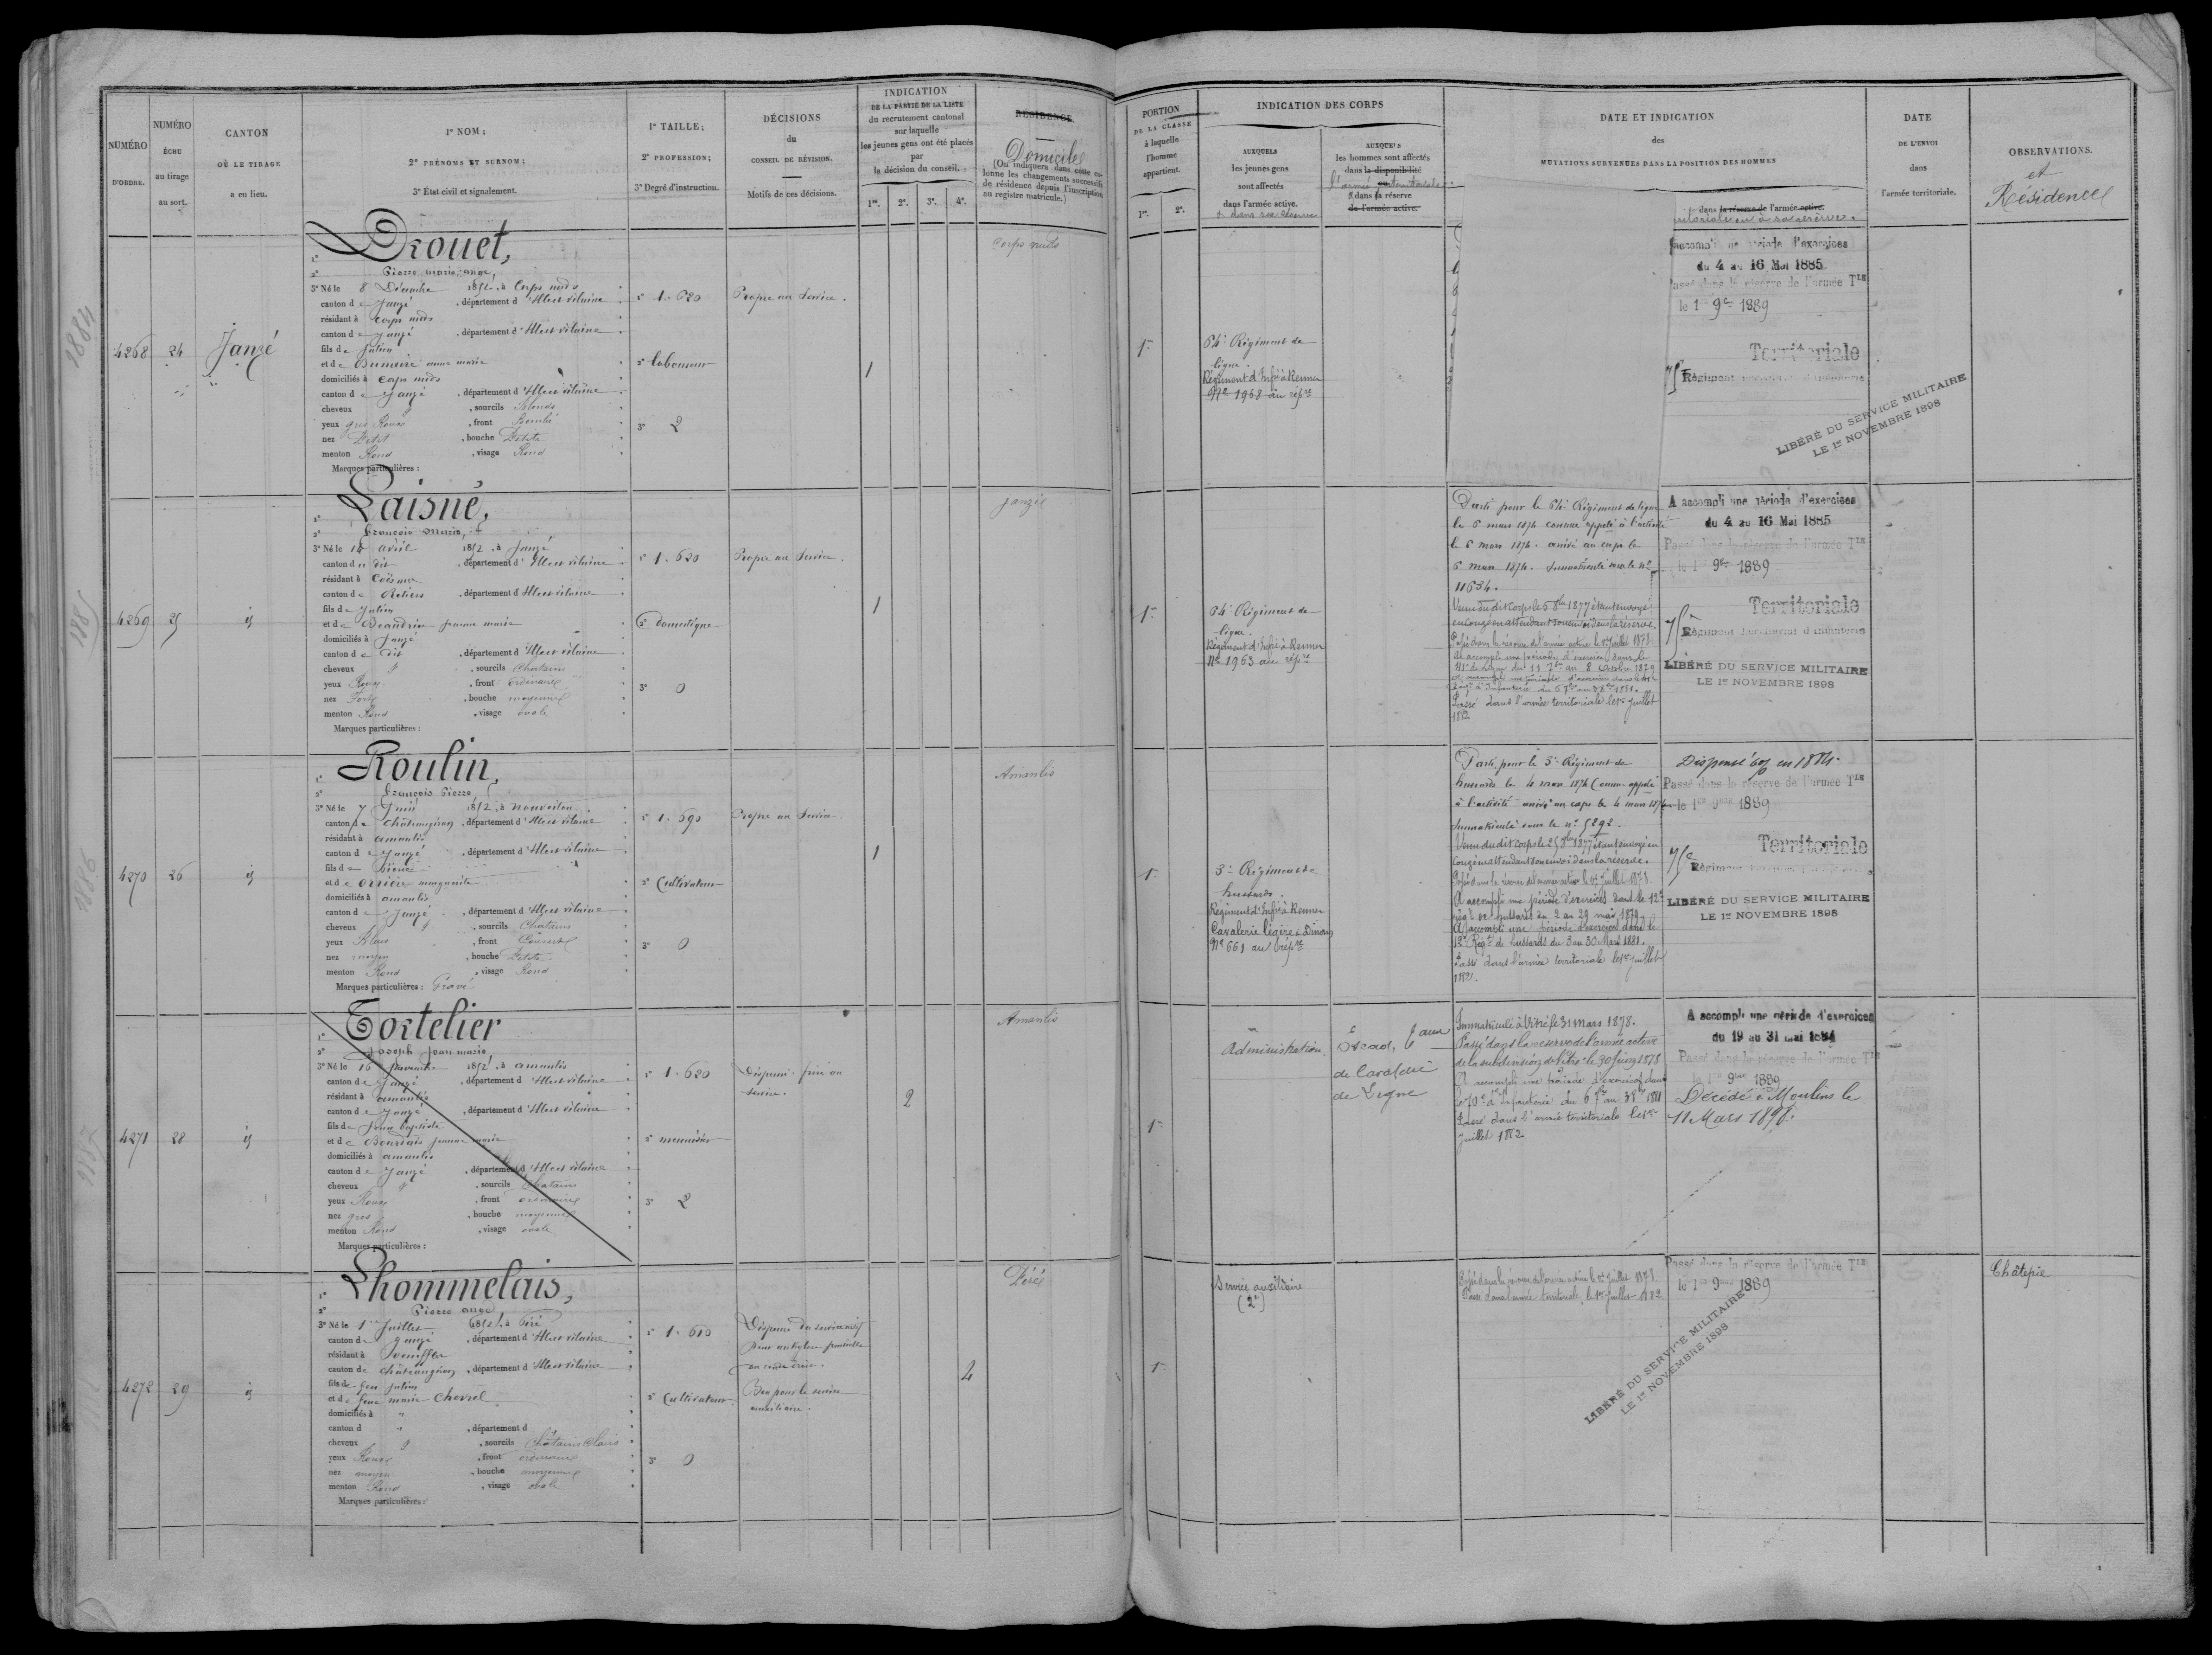 NUMÉRO
D'ORDRE.
NUMÉRO
ÉCHU
au tirage
au sort.
CANTON
OÙ LE TIRAGE
a eu lieu.
1° NOM;
2° PRÉNOMS ET SURNOM;
3° État civil et signalement.
1° TAILLE;
2° PROFESSION;
3° Degré d'instruction.
DÉCISIONS
du
CONSEIL DE RÉVISION.
Motifs de ces décisions.
INDICATION
DE LA PARTIE DE LA LISTE
du recrutement cantonal
sur laquelle
les jeunes gens ont été placés
par
la décision du conseil.
1re. 2e. 3e. 4e.
RÉSIDENCE
Domiciles
(On indiquera dans cette co-
lonne les changements successifs
de résidence depuis l'inscription
au registre matricule.)
4268
24
Janzé
Drouet,
2° Pierre marie ange,
3° Né le 8 Décembre 1852, à Corps nuds
canton de Janzé, département d'Ille et vilaine
résidant à Corps nuds
canton de Janzé, département d'Ille et vilaine
fils de Julien
et de anne marie
domiciliés à Corps nuds
canton de Janzé, département d'Ille et vilaine
cheveux &, sourcils Blonds
yeux gris Roux, front Bombé
nez Petit, bouche Petite
menton Rond, visage Rond
Marques particulières :
1° 1.620
2° laboureur
3° 2
Propre au Service.
1
Corps nuds
4269
25
id
Laisné,
2° François Marie,
3° Né le 14 avril 1852, à Janzé
canton du dit, département d'Ille et vilaine
résidant à Coësmes
canton de Retiers, département d'Ille et vilaine
fils de Julien
et de Beaudrin jeanne marie
domiciliés à Janzé
canton de dit, département d'Ille et vilaine
cheveux &, sourcils Chatains
yeux Roux, front ordinaire
nez Fort, bouche moyenne
menton Rond, visage ovale
Marques particulières :
1° 1.620
2° domestique
3° 0
Propre au Service.
1
Janzé
4270
26
id
Roulin,
2° François Pierre,
3° Né le 7 Juin 1852, à Nouvoitou
canton de Châteaugiron, département d'Ille et vilaine
résidant à amanlis
canton de Janzé, département d'Ille et vilaine
fils de Pierre
et de marguerite
domiciliés à amanlis
canton de Janzé, département d'Ille et vilaine
cheveux &, sourcils Chatains
yeux Bleus, front Couvert
nez moyen, bouche Petite
menton Rond, visage Rond
Marques particulières : Gravé
1° 1.690
2° Cultivateur
3° 0
Propre au Service.
1
Amanlis
4271
28
id
Tortelier
2° Joseph Jean marie
3° Né le 16 Novembre 1852, à amanlis
canton de Janzé, département d'Ille et vilaine
résidant à amanlis
canton de Janzé, département d'Ille et vilaine
fils de Jean baptiste
et de Bourdais jeanne marie
domiciliés à amanlis
canton de Janzé, département d'Ille et vilaine
cheveux &, sourcils Chatains
yeux Roux, front ordinaire
nez gros, bouche moyenne
menton Rond, visage ovale
Marques particulières :
1° 1.620
2° menuisier
3° 2
Dispensé. frère au
service.
2
Amanlis
4272
29
id
Lhommelais,
2° Pierre ange
3° Né le 1er Juillet 1852, à Piré
canton de Janzé, département d'Ille et vilaine
résidant à Venèffles
canton de Châteaugiron, département d'Ille et vilaine
fils de feu Julien
et de feue marie Chevrel
domiciliés à "
canton d ", département d
cheveux &, sourcils Châtains Clairs
yeux Roux, front ordinaire
nez moyen, bouche moyenne
menton Rond, visage ovale
Marques particulières :
1° 1.610
2° Cultivateur
3° 0
Dispensé du service actif
pour ankylose partielle
au coude droit.
Bon pour le service
auxiliaire.
4
Piré
PORTION
DE LA CLASSE
à laquelle
l'homme
appartient.
1re. 2e.
INDICATION DES CORPS
AUXQUELS
les jeunes gens
sont affectés
dans l'armée active.
& dans sa réserve
AUXQUELS
les hommes sont affectés
dans la disponibilité
l'armée territoriale
& dans sa réserve
de l'armée active.
DATE ET INDICATION
des
MUTATIONS SURVENUES DANS LA POSITION DES HOMMES
dans la réserve de l'armée active.
ritoriale ou à sa réserve.
DATE
DE L'ENVOI
dans
l'armée territoriale.
OBSERVATIONS.
et
Résidences
1re
64e Régiment de
ligne.
Régiment d'Infie à Rennes
No 1968 au répre
accompli une période d'exercices
du 4 au 16 Mai 1885
Passé dans la réserve de l'armée Tle
le 1er 9bre 1889
Territoriale
75e Régiment territorial d'infanterie
LIBÉRÉ DU SERVICE MILITAIRE
LE 1er NOVEMBRE 1898
1re
64e Régiment de
ligne.
Régiment d'Infie à Rennes
No 1963 au répre
Parti pour le 64e Régiment de ligne
le 6 mars 1874 comme appelé à l'activité
le 6 mars 1874. arrivé au corps le
6 mars 1874. Immatriculé sous le no
11634.
Venu du dit Corps le 6 8bre 1877 étant envoyé
en Congé en attendant son envoi dans la réserve.
Passé dans la réserve de l'armée active le 1er Juillet 1878
A accompli une période d'exercices dans le
41e de Ligne du 11 7bre au 8 Octobre 1879
Passé dans l'armée territoriale le 1er Juillet
1882
A accompli une période d'exercices
du 4 au 16 Mai 1885
Passé dans la réserve de l'armée Tle
le 1er 9bre 1889
Territoriale
75e Régiment territorial d'infanterie
LIBÉRÉ DU SERVICE MILITAIRE
LE 1er NOVEMBRE 1898
1re
3e Régiment de
hussards.
Régiment d'Infie à Rennes
Cavalerie légère à Dinan
No 661 au répre
Parti pour le 3e Régiment de
hussards le 4 mars 1874 Comme appelé
à l'activité arrivé au corps le 4 mars 1874
Immatriculé sous le no 5292.
Venu du dit Corps le 25 1877 étant envoyé en
Congé en attendant son envoi dans la réserve.
Passé dans la réserve de l'armée active le 1er Juillet 1878.
A accompli une période d'exercices dans le 12e
Régt de hussards du 2 au 29 mai 1879
A accompli une période d'exercices dans le
12e Régt de hussards du 3 au 30 Mars 1881.
Passé dans l'armée territoriale le 1er Juillet
1882.
Dispensé en 1884.
Passé dans la réserve de l'armée Tle
le 1er 9bre 1889
Territoriale
75e Régiment
LIBÉRÉ DU SERVICE MILITAIRE
LE 1er NOVEMBRE 1898
1re
Administration.
de Cavalerie
de Ligne
Immatriculé à Vitré le 31 Mars 1878.
Passé dans la réserve de l'armée active
de la subdivision de Vitré le 30 Juin 1878
A accompli une période d'exercices dans
le 70e d'Infanterie du 6 7bre au 3 8bre 1881
Passé dans l'armée territoriale le 1er
Juillet 1882.
A accompli une période d'exercices
du 19 au 31 mai 1884
Passé dans la réserve de l'armée Tle
le 1er 9bre 1889
Décédé à Moulins le
11 Mars
1re
Service auxiliaire
(2e)
Passé dans la réserve de l'armée active le 1er Juillet 1878.
Passé dans l'armée territoriale, le 1er Juillet 1882
Passé dans la réserve de l'armée Tle
le 1er 9bre 1889
LIBÉRÉ DU SERVICE MILITAIRE
LE 1er NOVEMBRE 1898
1884
1885
1886
1887